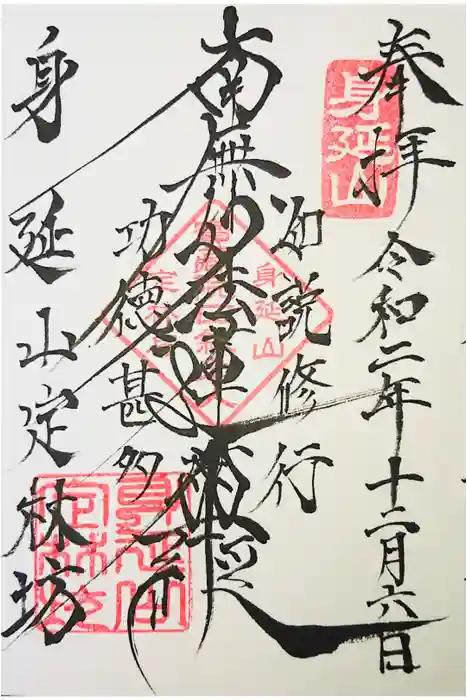 奉拝 令和二年十二月六日
身延山
如説修行
南無妙法蓮華経
功徳甚多
身延山定林坊
身延山